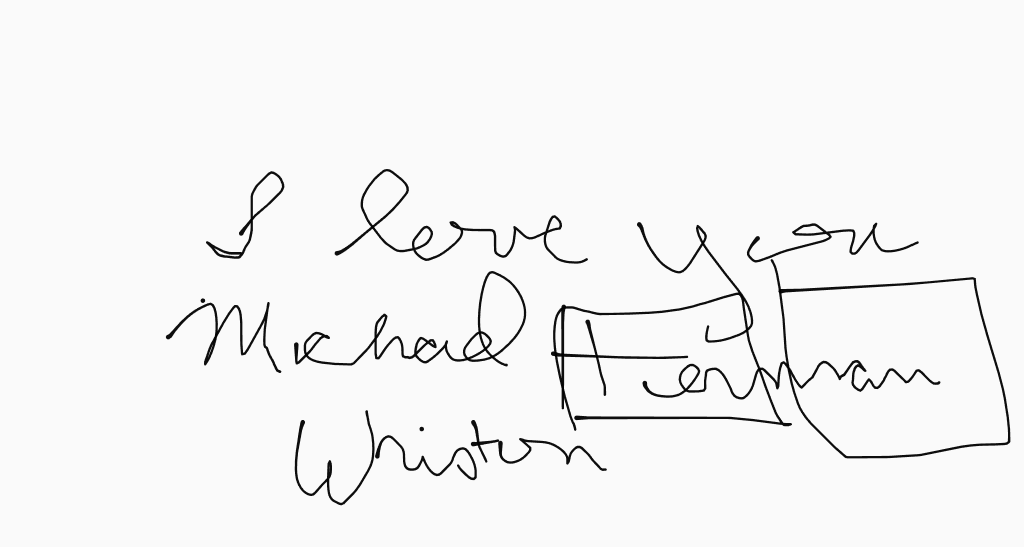 I love you
Michael Herman
Whiston